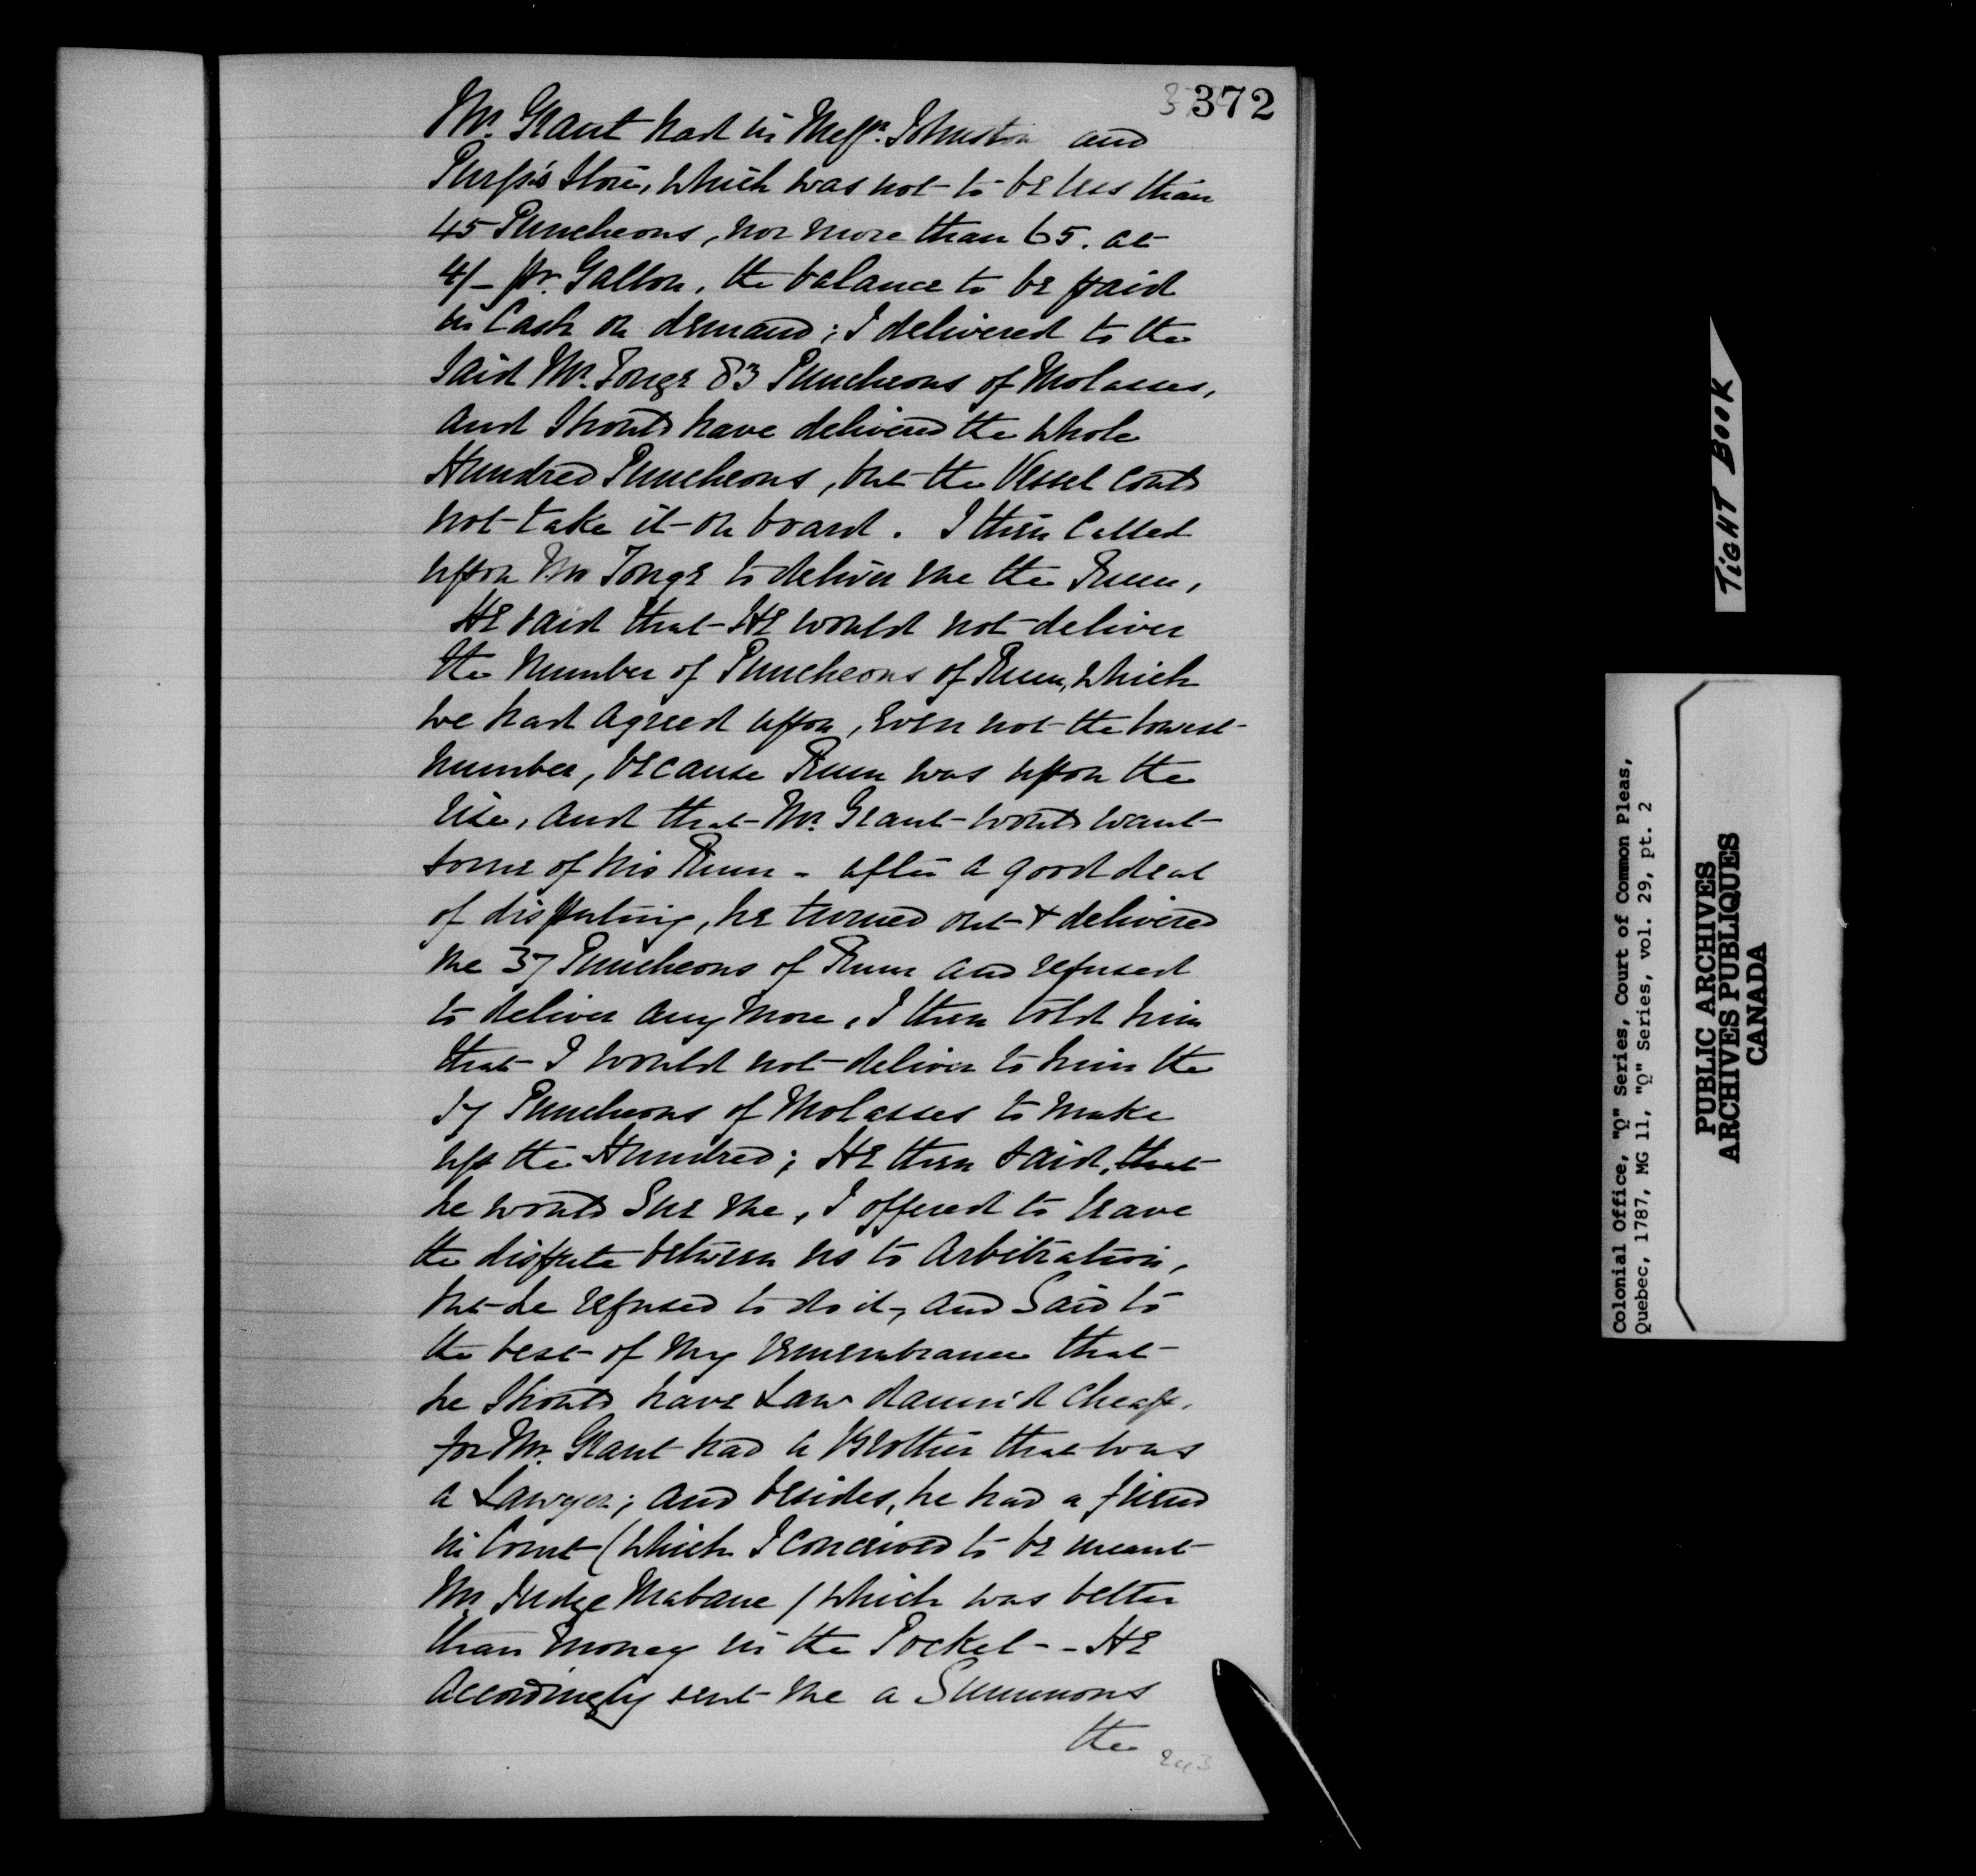 372
Mr. Grant had in Messrs. Johnston and
Purss's Store, which was not to be less than
45 Puncheons, nor more than 65. at
4/- pr. Gallon, the balance to be paid
in Cash on demand; I delivered to the
said Mr. Tonge 83 Puncheons of Molasses,
and should have delivered the whole
Hundred Puncheons, but the Vessel could
not take it on board. I then called
upon Mr Tonge to deliver me the Rum,
He said that He would not deliver
the number of Puncheons of Rum, which
we had agreed upon, even not the lowest
number, because Rum was upon the
rise, and that Mr. Grant would want
some of his Rum - after a good deal
of disputing, he turned out & delivered
me 37 Puncheons of Rum and refused
to deliver any more, I then told him
that I would not deliver to him the
17 Puncheons of Molasses to make
up the Hundred; He then said, that
he would Sue me, I offered to leave
the dispute between us to Arbitration,
but he refused to do it, and said to
the best of my remembrance that
he should have Law damn'd cheap,
for Mr. Grant had a Brother that was
a Lawyer; and besides, he had a friend
in Court (which I conceived to be meant
Mr. Judge Mabane / which was better
than money in the Pocket - - He
accordingly sent me a Summons
the
243
TIGHT BOOK
Colonial Office, "Q" Series, Court of Common Pleas,
Quebec, 1787, MG 11, "Q" Series, vol. 29, pt. 2
PUBLIC ARCHIVES
ARCHIVES PUBLIQUES
CANADA